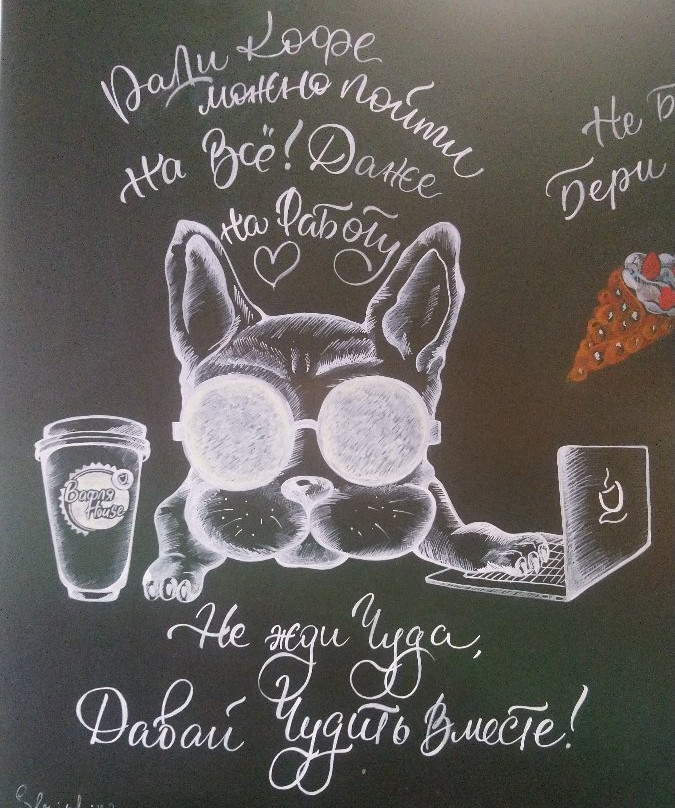 Ради Кофе
можно пойти
на Всё! Даже
на Работу
Не Б
Бери
Вафля
House
Не жди Чуда,
Давай Чудить Вместе!